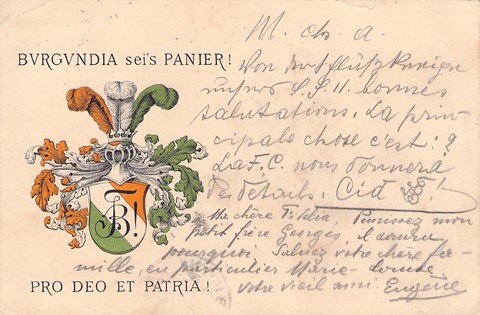 BVRGVNDIA sei's PANIER!
B!
PRO DEO ET PATRIA!
M. ch. a.
Von der
unserer S.S. 11. bonnes
salutations. La prin-
cipale chose c'est: ?
La F.C. nous donnera
des détails. Cid !
Ma chère Punissez mon
petit frère Georges, il
pourquoi. Saluez votre chère fa-
mille, en particulier Marie-
votre vieil ami. Eugène